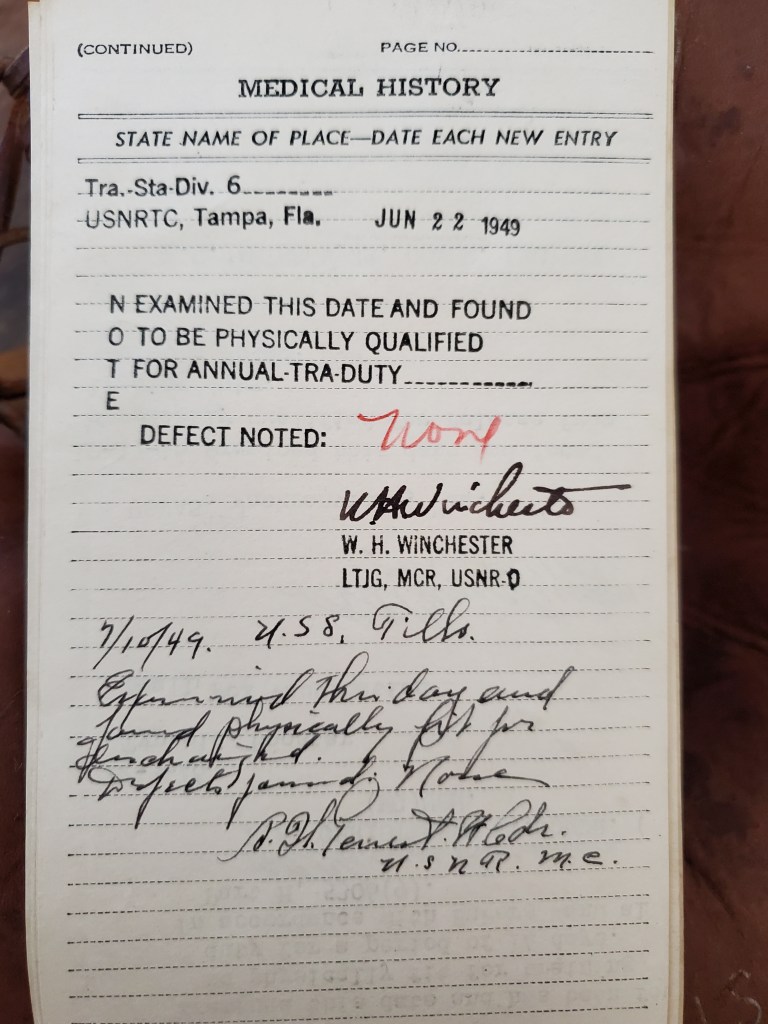 (CONTINUED) PAGE NO.
MEDICAL HISTORY
STATE NAME OF PLACE—DATE EACH NEW ENTRY
Tra.-Sta-Div. 6
USNRTC, Tampa, Fla. JUN 22 1949
N EXAMINED THIS DATE AND FOUND
O TO BE PHYSICALLY QUALIFIED
T FOR ANNUAL-TRA-DUTY
E
DEFECT NOTED: None
W H Winchester
W. H. WINCHESTER
LTJG, MCR, USNR-O
7/10/49. U.S.S. Tills.
Examined this day and
found physically fit for
Defects found; None
U S N R. M.C.